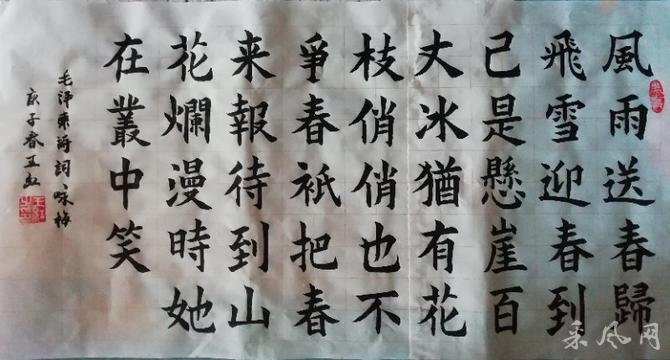 風雨送春歸
飛雪迎春到
已是懸崖百
丈冰猶有花
枝俏俏也不
爭春衹把春
来報待到山
花爛漫時她
在叢中笑
毛澤東詩詞咏梅
庚子春王虹
采风网